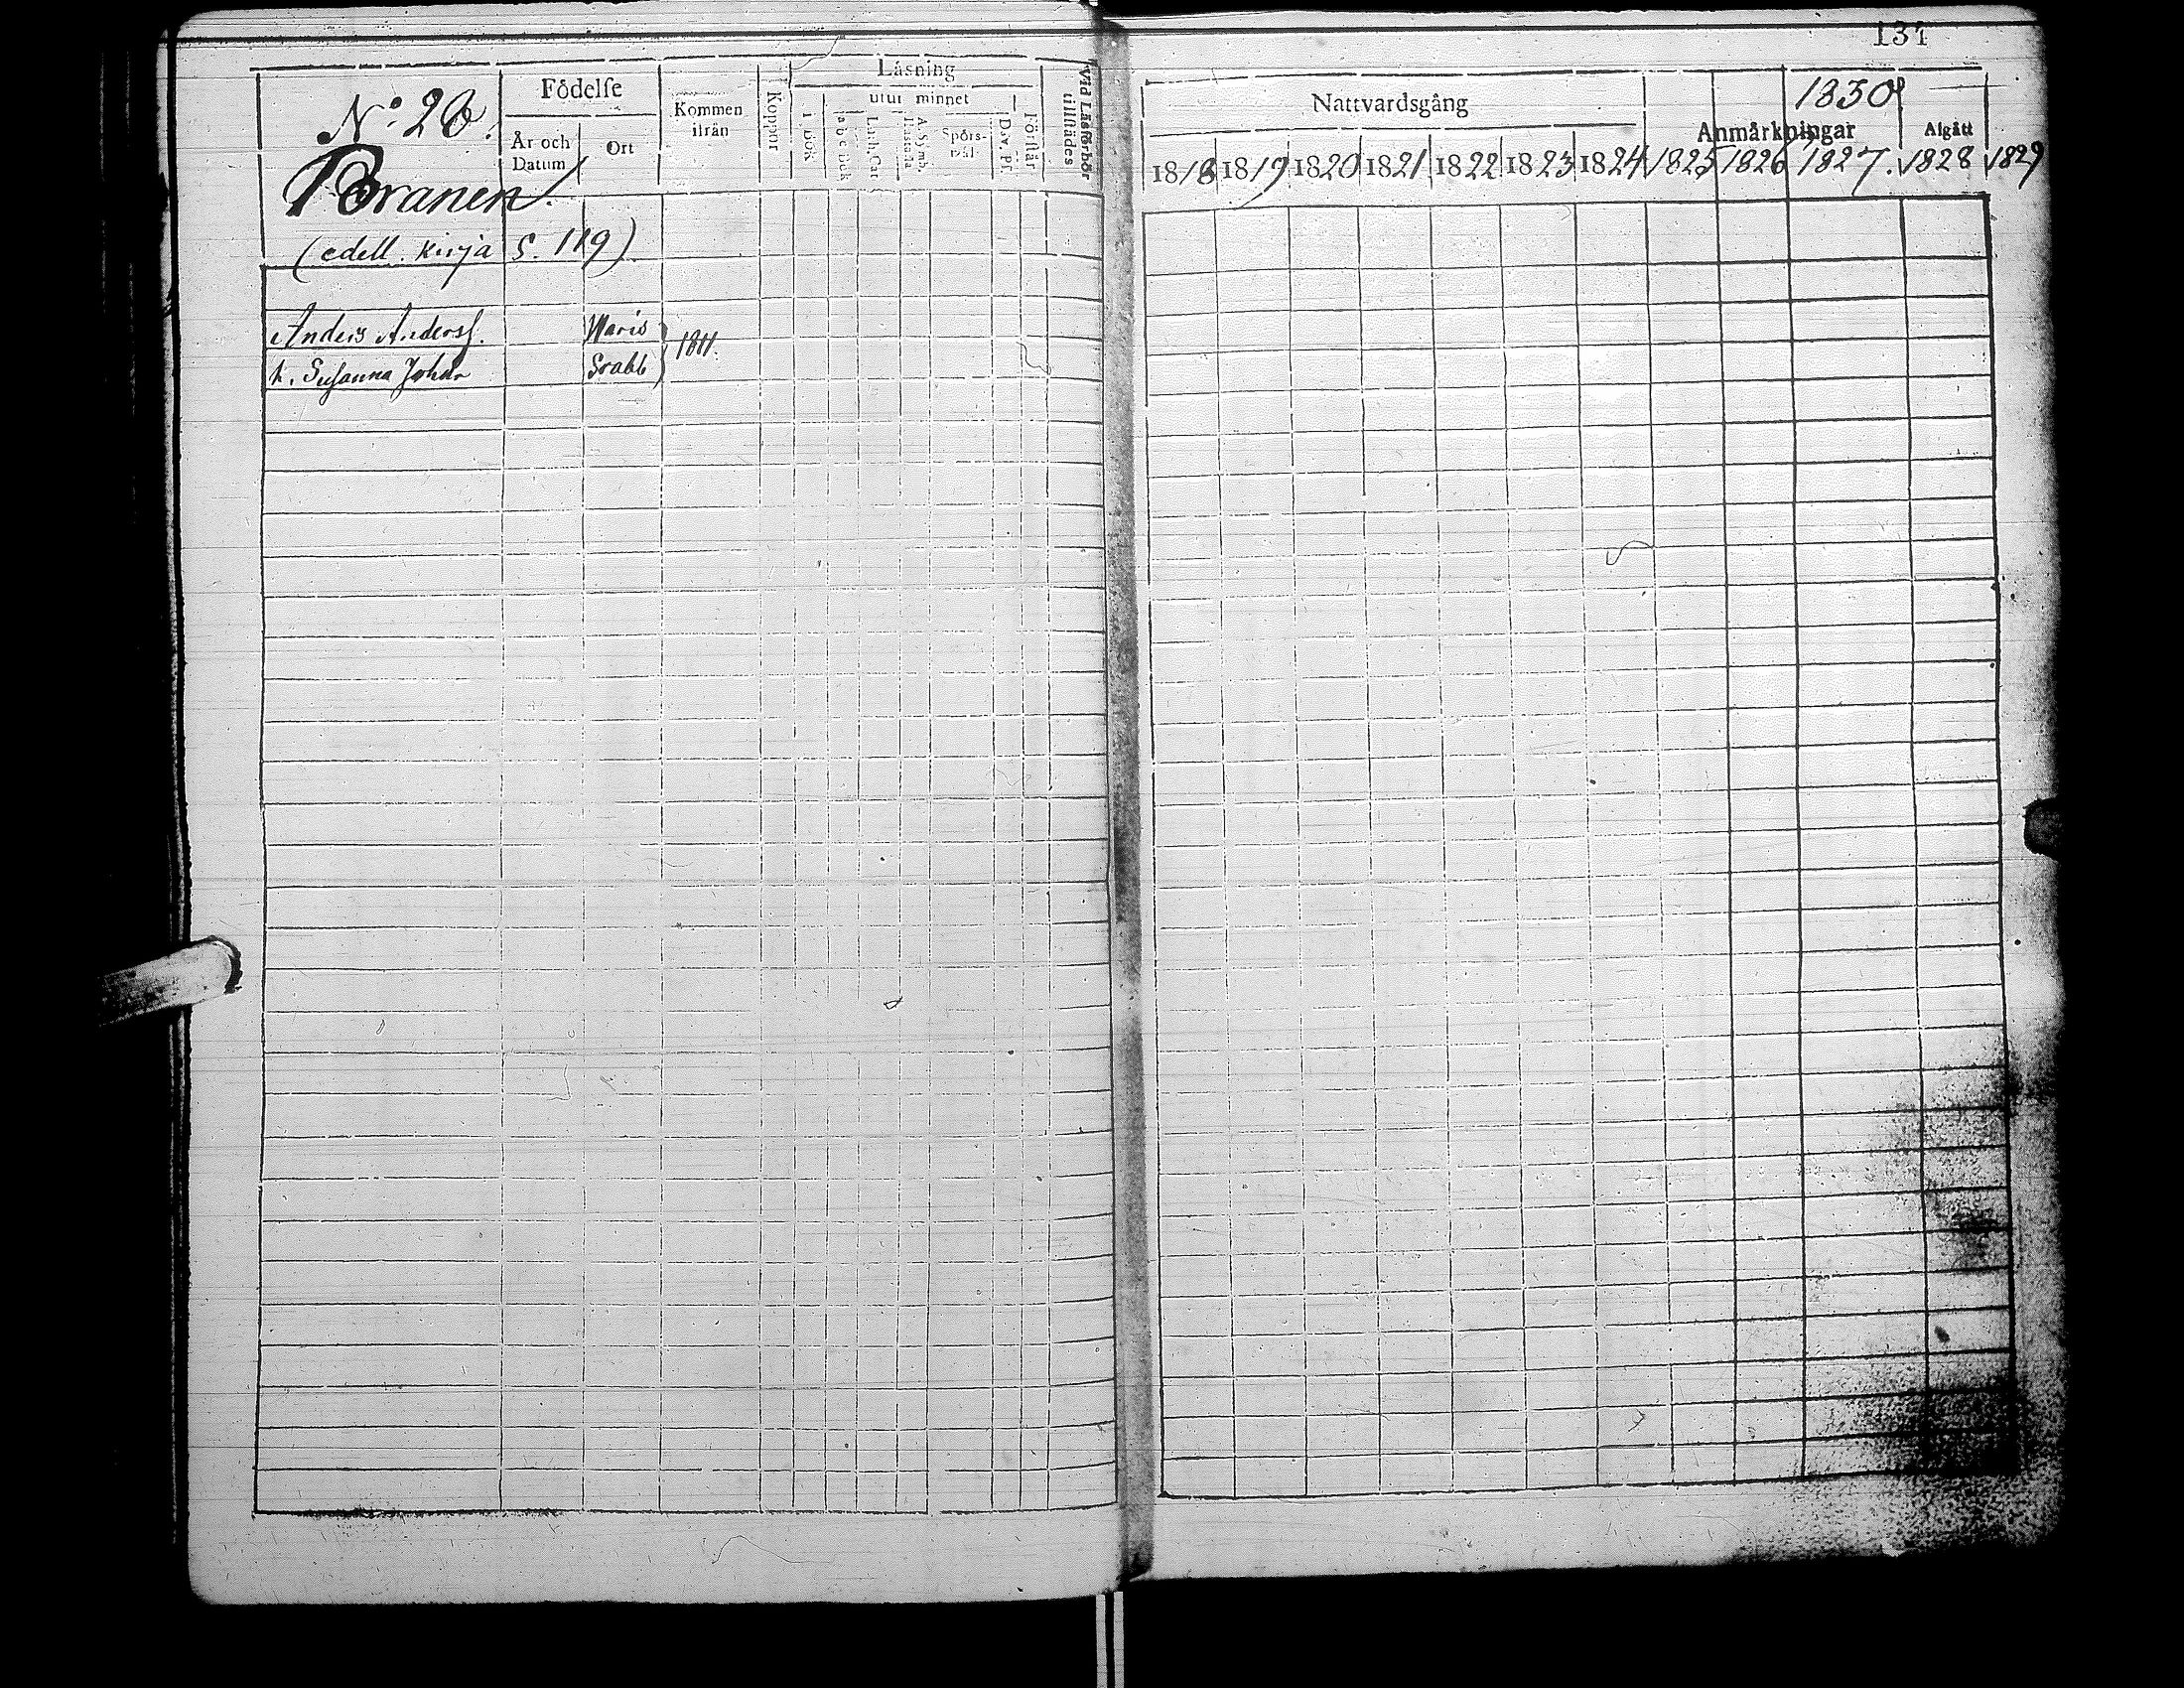 131
No. 26.
Födelse
År och Datum
Ort
Kommen ifrån
Koppor
Läsning
utur minnet
i bok
a b c bok
Luth. Cat
A. Symb.
Spörsmål
Dav. Ps.
Förstår
Vid Läsförhör tillstädes
Nattvardsgång
1830
Anmärkningar
Afgått
1818 1819 1820 1821 1822 1823 1824 1825 1826 1827. 1828 1829
Branen.
(edell. kirja S. 119)
Anders Anderss. Maris
h. Susanna Johdr Srabb
1811.